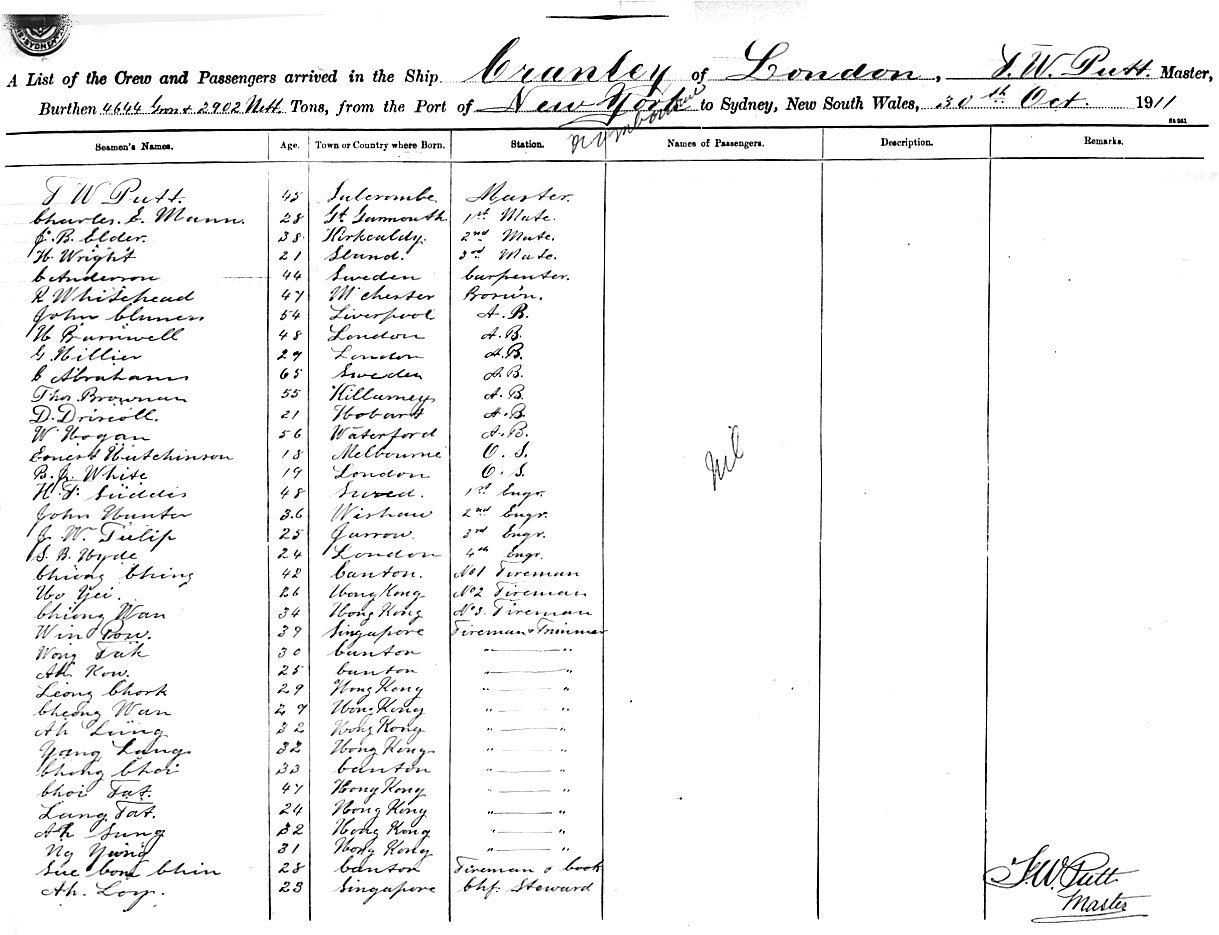 SYDNEY
A List of the Crew and Passengers arrived in the Ship Cranley of London, F. W. Putt. Master,
Burthen 4644 Gross & 2902 Nett. Tons, from the Port of New York to Sydney, New South Wales, 30th Oct. 1911
Seamen's Names. Age. Town or Country where Born. Station. Names of Passengers. Description. Remarks.
F W Putt. 45 Salcombe Master.
Charles. E. Mann. 28 Gt Yarmouth 1st Mate.
J. B. Elder. 38 Kirkcaldy. 2nd Mate.
H. Wright 21 3rd Mate.
C Anderson 44 Sweden Carpenter.
R Whitehead 47 M'chester Bosun.
John 54 Liverpool A.B.
H Barnwell 48 London A.B.
G Hillier 29 London A.B.
C Abrahams 65 Sweden A.B.
Thos. Brownan 55 Killarney A.B.
D. Driscoll. 21 Hobart A.B.
W Hogan 56 Waterford A.B.
Ernest Hutchinson 18 Melbourne O.S.
B. J. White 19 London O.S.
H. F. Suddis 48 1st Engr.
John Hunter 36 Wishaw 2nd Engr.
J. W. Tulip 25 Jarrow. 3rd Engr.
S. B. Hyde 24 London 4th Engr.
Cheong Ching 42 Canton. No1 Fireman
Ho Yei. 26 Hong Kong No2 Fireman
Cheong Wan 34 Hong Kong No3. Fireman
Win Pow. 39 Singapore Fireman & Trimmer
Wong Tak 30 Canton " — "
Ah Kow. 25 Canton " — "
Leong Chork 29 Hong Kong " — "
Cheong Wan 29 Hong Kong " — "
Ah Lung 32 Hong Kong " — "
Yang Lang 32 Hong Kong " — "
Chong Choi 33 Canton " — "
Choi Tat. 47 Hong Kong " — "
Lang Tat. 24 Hong Kong " — "
Ah Sung 32 Hong Kong " — "
Ng Yung 31 Hong Kong " — "
Sue Chin 28 Canton Fireman & Cook
Ah. Loy. 23 Singapore Chf. Steward
Nil
F.W. Putt
Master